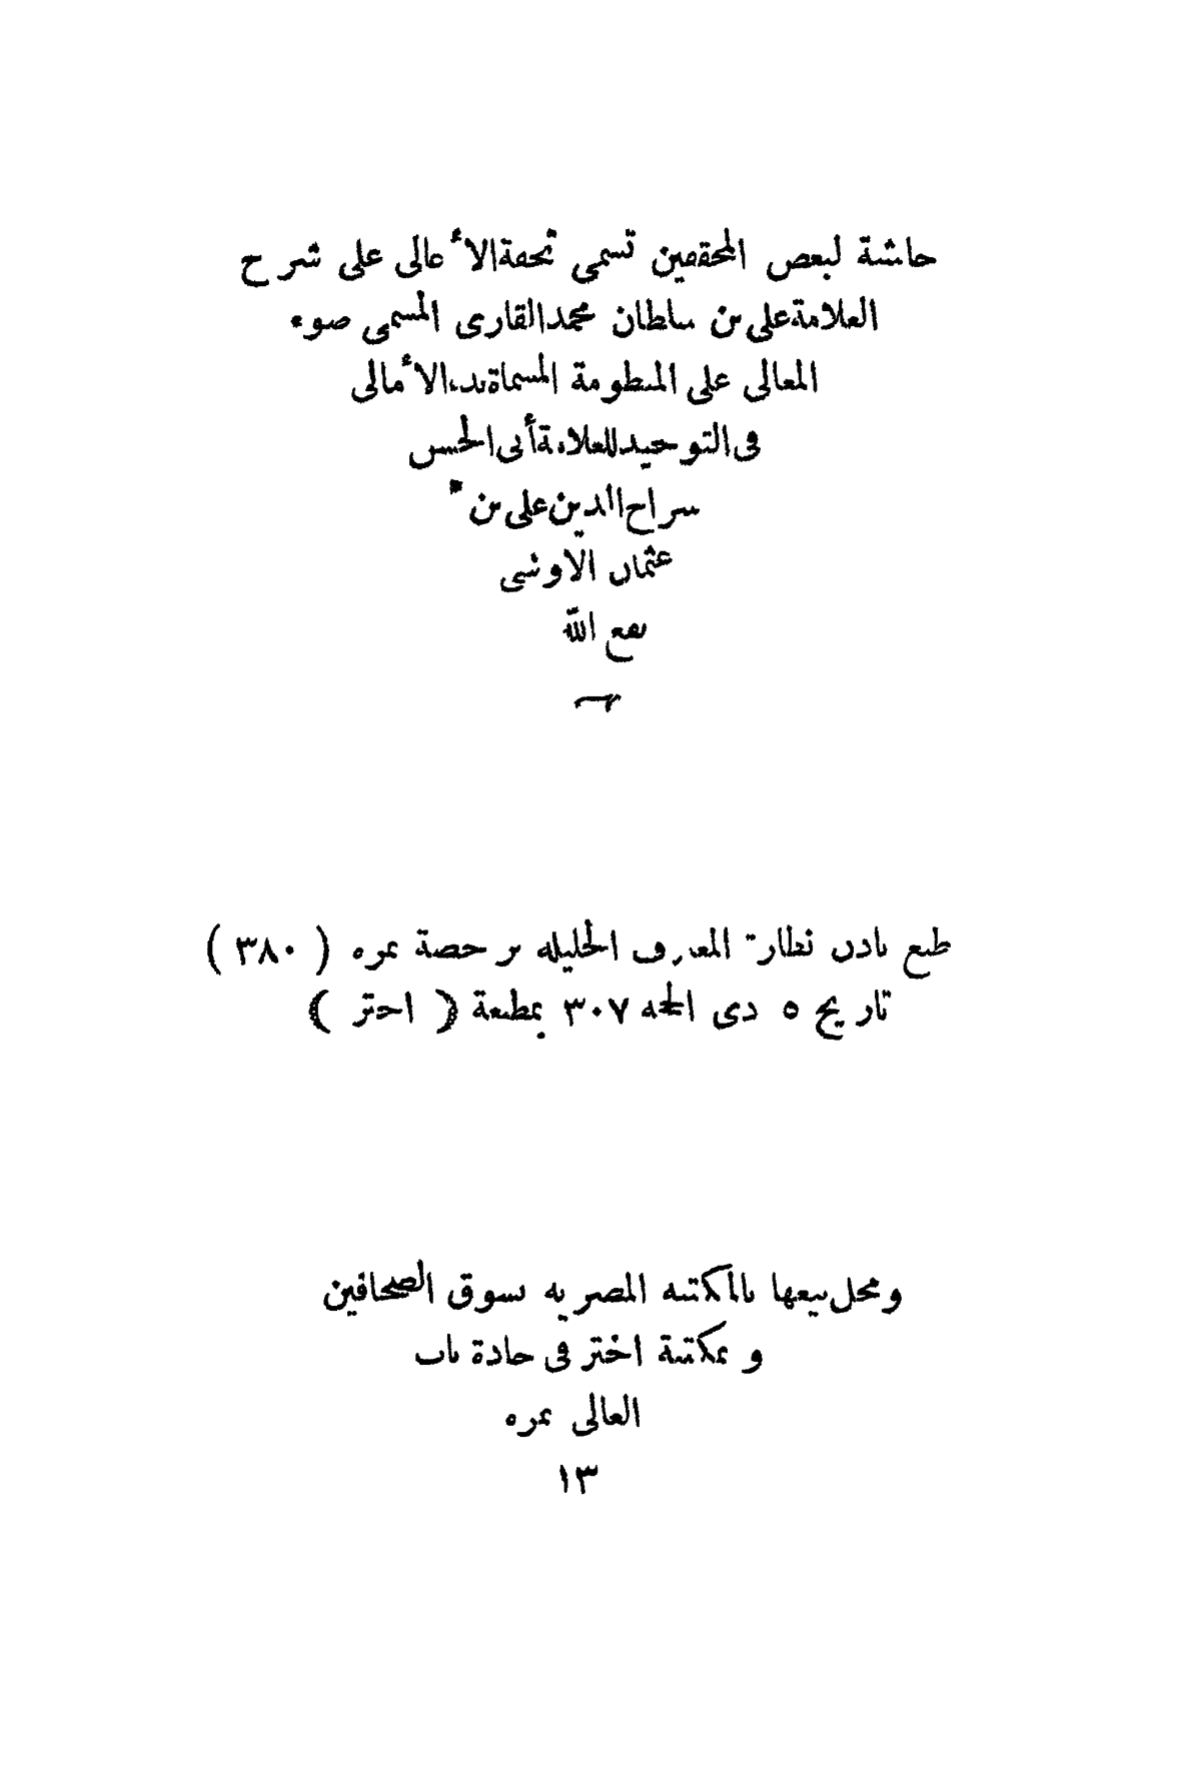 حاشية لبعض المحققين تسمى تحفة الأعالى على شرح
العلامة على بن سلطان محمد القارى المسمى ضوء
المعالى على المنظومة المسماة بدء الأمالى
فى التوحيد للعلامة أبى الحسن
سراج الدين على بن
عثمان الاوشى
نفع الله
طبع باذن نظارة المعارف الجليله برخصة نمره ( ٣٨٠ )
تاريخ ٥ ذى الحجه ٣٠٧ بمطبعة ( اختر )
ومحل بيعها بالمكتبه المصريه بسوق الصحافين
و بمكتبة اختر فى جادة باب
العالى نمره
١٣